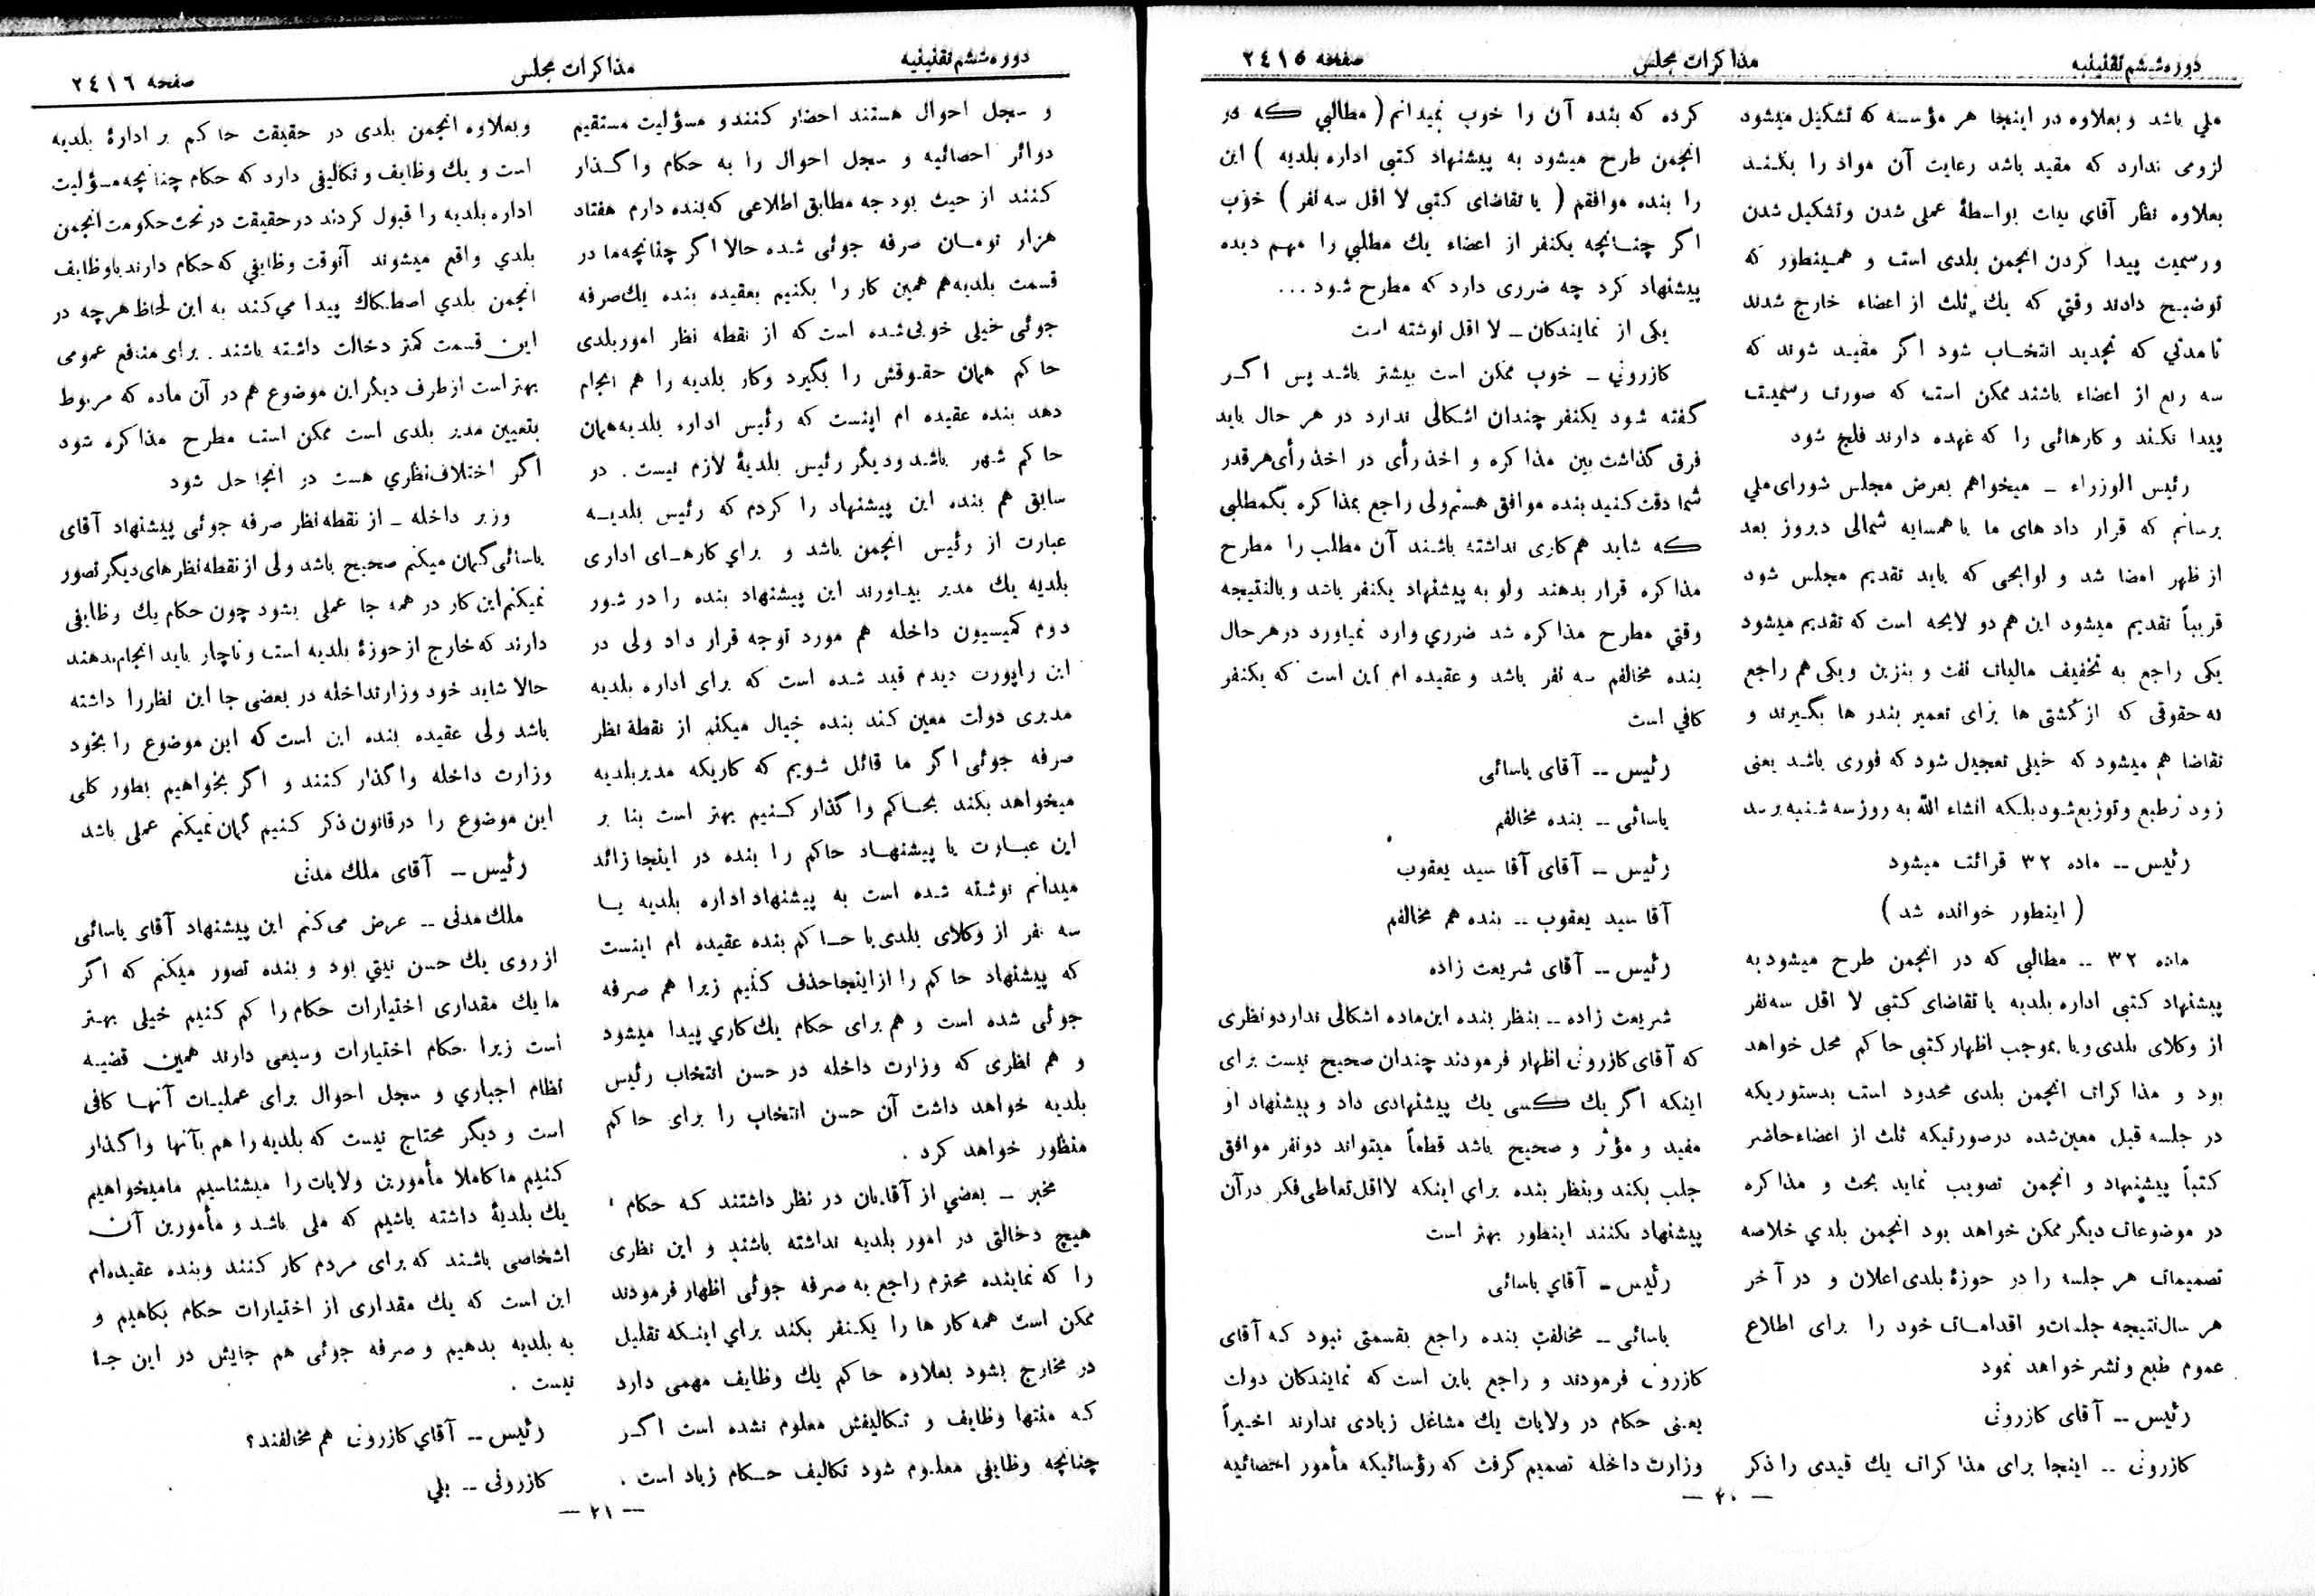 دوره ششم تقنینیه
مذاکرات مجلس
صفحه ۲٤۱٥
ملی باشد و بعلاوه در اینجا هر مؤسسه که تشکیل میشود
لزومی ندارد که مقید باشد رعایت آن مواد را بکنند
بعلاوه نظر آقای بیات بواسطهٔ عملی شدن و تشکیل شدن
ورسمیت پیدا کردن انجمن بلدی است و همینطور که
توضیح دادند وقتی که یك ثلث از اعضاء خارج شدند
تا مدتی که تجدید انتخاب شود اگر مقید شوند که
سه ربع از اعضاء باشند ممکن است که صورت رسمیت
پیدا نکند و کارهائی را که عهده دارند فلج شود
رئیس الوزراء ـ میخواهم بعرض مجلس شورای ملی
برسانم که قرار داد های ما با همسایه شمالی دیروز بعد
از ظهر امضا شد و لوایحی که باید تقدیم مجلس شود
قریباً تقدیم میشود این هم دو لایحه است که تقدیم میشود
یکی راجع به تخفیف مالیات نفت و بنزین و یکی هم راجع
به حقوقی که از کشتی ها برای تعمیر بندر ها بگیرند و
تقاضا هم میشود که خیلی تعجیل شود که فوری باشد یعنی
زود تر طبع و توزیع شود بلکه انشاء الله به روز سه شنبه برسد
رئیس ـ ماده ۳۲ قرائت میشود
( اینطور خوانده شد )
ماده ۳۲ ـ مطالبی که در انجمن طرح میشود به
پیشنهاد کتبی اداره بلدیه یا تقاضای کتبی لا اقل سه نفر
از وکلای بلدی و یا بموجب اظهار کتبی حاکم محل خواهد
بود و مذاکرات انجمن بلدی محدود است بدستوریکه
در جلسه قبل معین شده درصورتیکه ثلث از اعضاء حاضر
کتباً پیشنهاد و انجمن تصویب نماید بحث و مذاکره
در موضوعات دیگر ممکن خواهد بود انجمن بلدي خلاصه
تصمیمات هر جلسه را در حوزهٔ بلدی اعلان و در آخر
هر سال نتیجه جلسات و اقدامات خود را برای اطلاع
عموم طبع و نشر خواهد نمود
رئیس ـ آقای کازرونی
کازرونی ـ اینجا برای مذاکرات یك قیدی را ذکر
کرده که بنده آن را خوب نمیدانم ( مطالبی که در
انجمن طرح میشود به پیشنهاد کتبی اداره بلدیه ) این
را بنده موافقم ( یا تقاضای کتبی لا اقل سه نفر ) خوب
اگر چنانچه یکنفر از اعضاء یك مطلبی را مهم دیده
پیشنهاد کرد چه ضرری دارد که مطرح شود ...
یکی از نمایندکان ـ لا اقل نوشته است
کازرونی ـ خوب ممکن است بیشتر باشد پس اگر
گفته شود یکنفر چندان اشکالی ندارد در هر حال باید
فرق گذاشت بین مذاکره و اخذ رأی در اخذ رأی هر قدر
شما دقت کنید بنده موافق هستم ولی راجع بمذاکره یکمطلبی
که شاید هم کاری نداشته باشند آن مطلب را مطرح
مذاکره قرار بدهند ولو به پیشنهاد یکنفر باشد و بالنتیجه
وقتی مطرح مذاکره شد ضرري وارد نمیاورد در هر حال
بنده مخالفم سه نفر باشد و عقیده ام این است که یکنفر
کافی است
رئیس ـ آقای یاسائی
یاسائی ـ بنده مخالفم
رئیس ـ آقای آقا سید یعقوب
آقا سید یعقوب ـ بنده هم مخالفم
رئیس ـ آقای شریعت زاده
شریعت زاده ـ بنظر بنده این ماده اشکالی ندارد و نظری
که آقای کازرونی اظهار فرمودند چندان صحیح نیست برای
اینکه اگر یك کسی یك پیشنهادی داد و پیشنهاد او
مفید و مؤثر و صحیح باشد قطعاً میتواند دو نفر موافق
جلب بکند و بنظر بنده برای اینکه لااقل تعاطی فکر در آن
پیشنهاد بکنند اینطور بهتر است
رئیس ـ آقاي یاسائی
یاسائی ـ مخالفت بنده راجع بقسمتی نبود که آقای
کازرونی فرمودند و راجع باین است که نمایندکان دولت
یعنی حکام در ولایات یك مشاغل زیادی ندارند اخیراً
وزارت داخله تصمیم گرفت که رؤسائیکه مأمور احصائیه
— ۲۰ —
دوره ششم تقنینیه
مذاکرات مجلس
صفحه ۲٤۱٦
و سجل احوال هستند احضار کنند و مسؤلیت مستقیم
دوائر احصائیه و سجل احوال را به حکام واگذار
کنند از حیث بودجه مطابق اطلاعی که بنده دارم هفتاد
هزار تومان صرفه جوئی شده حالا اگر چنانچه ما در
قسمت بلدیه هم همین کار را بکنیم بعقیده بنده یك صرفه
جوئی خیلی خوبی شده است که از نقطه نظر امور بلدی
حاکم همان حقوقش را بگیرد وکار بلدیه را هم انجام
دهد بنده عقیده ام اینست که رئیس اداره بلدیه همان
حاکم شهر باشد و دیگر رئیس بلدیهٔ لازم نیست . در
سابق هم بنده این پیشنهاد را کردم که رئیس بلدیه
عبارت از رئیس انجمن باشد و براي کارهای اداری
بلدیه یك مدیر بیاورند این پیشنهاد بنده را در شور
دوم کمیسیون داخله هم مورد توجه قرار داد ولی در
این راپورت دیدم قید شده است که برای اداره بلدیه
مدیری دولت معین کند بنده خیال میکنم از نقطه نظر
صرفه جوئی اگر ما قائل شویم که کاریکه مدیر بلدیه
میخواهد بکند بحاکم واگذار کنیم بهتر است بنا بر
این عبارت یا پیشنهاد حاکم را بنده در اینجا زائد
میدانم نوشته شده است به پیشنهاد اداره بلدیه یا
سه نفر از وکلای بلدی یا حاکم بنده عقیده ام اینست
که پیشنهاد حاکم را از اینجا حذف کنیم زیرا هم صرفه
جوئی شده است و هم برای حکام یك کاري پیدا میشود
و هم نظری که وزارت داخله در حسن انتخاب رئیس
بلدیه خواهد داشت آن حسن انتخاب را برای حاکم
منظور خواهد کرد .
مخبر ـ بعضي از آقایان در نظر داشتند که حکام
هیچ دخالتی در امور بلدیه نداشته باشند و این نظری
را که نماینده محترم راجع به صرفه جوئی اظهار فرمودند
ممکن است همه کار ها را یکنفر بکند براي اینکه تقلیل
در مخارج بشود بعلاوه حاکم یك وظایف مهمی دارد
که منتها وظایف و تکالیفش معلوم نشده است اگر
چنانچه وظایفی معلوم شود تکالیف حکام زیاد است .
وبعلاوه انجمن بلدی در حقیقت حاکم بر ادارهٔ بلدیه
است و یك وظایف و تکالیفی دارد که حکام چنانچه مسؤلیت
اداره بلدیه را قبول کردند در حقیقت در تحت حکومت انجمن
بلدي واقع میشوند آنوقت وظایفی که حکام دارند باوظایف
انجمن بلدي اصطکاك پیدا می کند به این لحاظ هر چه در
این قسمت کمتر دخالت داشته باشند . برای منافع عمومی
بهتر است از طرف دیگر این موضوع هم در آن ماده که مربوط
بتعیین مدیر بلدی است ممکن است مطرح مذاکره شود
اگر اختلاف نظري هست در انجا حل شود
وزیر داخله ـ از نقطه نظر صرفه جوئی پیشنهاد آقای
یاسائی گمان میکنم صحیح باشد ولی از نقطه نظر های دیگر تصور
نمیکنم این کار در همه جا عملی بشود چون حکام یك وظایفی
دارند که خارج از حوزهٔ بلدیه است و ناچار باید انجام بدهند
حالا شاید خود وزارتداخله در بعضی جا این نظر را داشته
باشد ولی عقیده بنده این است که این موضوع را بخود
وزارت داخله واگذار کنند و اگر بخواهیم بطور کلی
این موضوع را در قانون ذکر کنیم گمان نمیکنم عملی باشد
رئیس ـ آقای ملك مدنی
ملك مدنی ـ عرض می کنم این پیشنهاد آقای یاسائی
از روی یك حسن نیتي بود و بنده تصور میکنم که اگر
ما یك مقداری اختیارات حکام را کم کنیم خیلی بهتر
است زیرا حکام اختیارات وسیعی دارند همین قضیه
نظام اجباري و سجل احوال برای عملیات آنها کافی
است و دیگر محتاج نیست که بلدیه را هم بآنها واگذار
کنیم ما کاملا مأمورین ولایات را میشناسیم ما میخواهیم
یك بلدیهٔ داشته باشیم که ملی باشد و مأمورین آن
اشخاصی باشند که برای مردم کار کنند و بنده عقیده ام
این است که یك مقداری از اختیارات حکام بکاهیم و
به بلدیه بدهیم و صرفه جوئی هم جایش در این جا
نیست .
رئیس ـ آقاي کازرونی هم مخالفند؟
کازرونی ـ بلي
— ۲۱ —